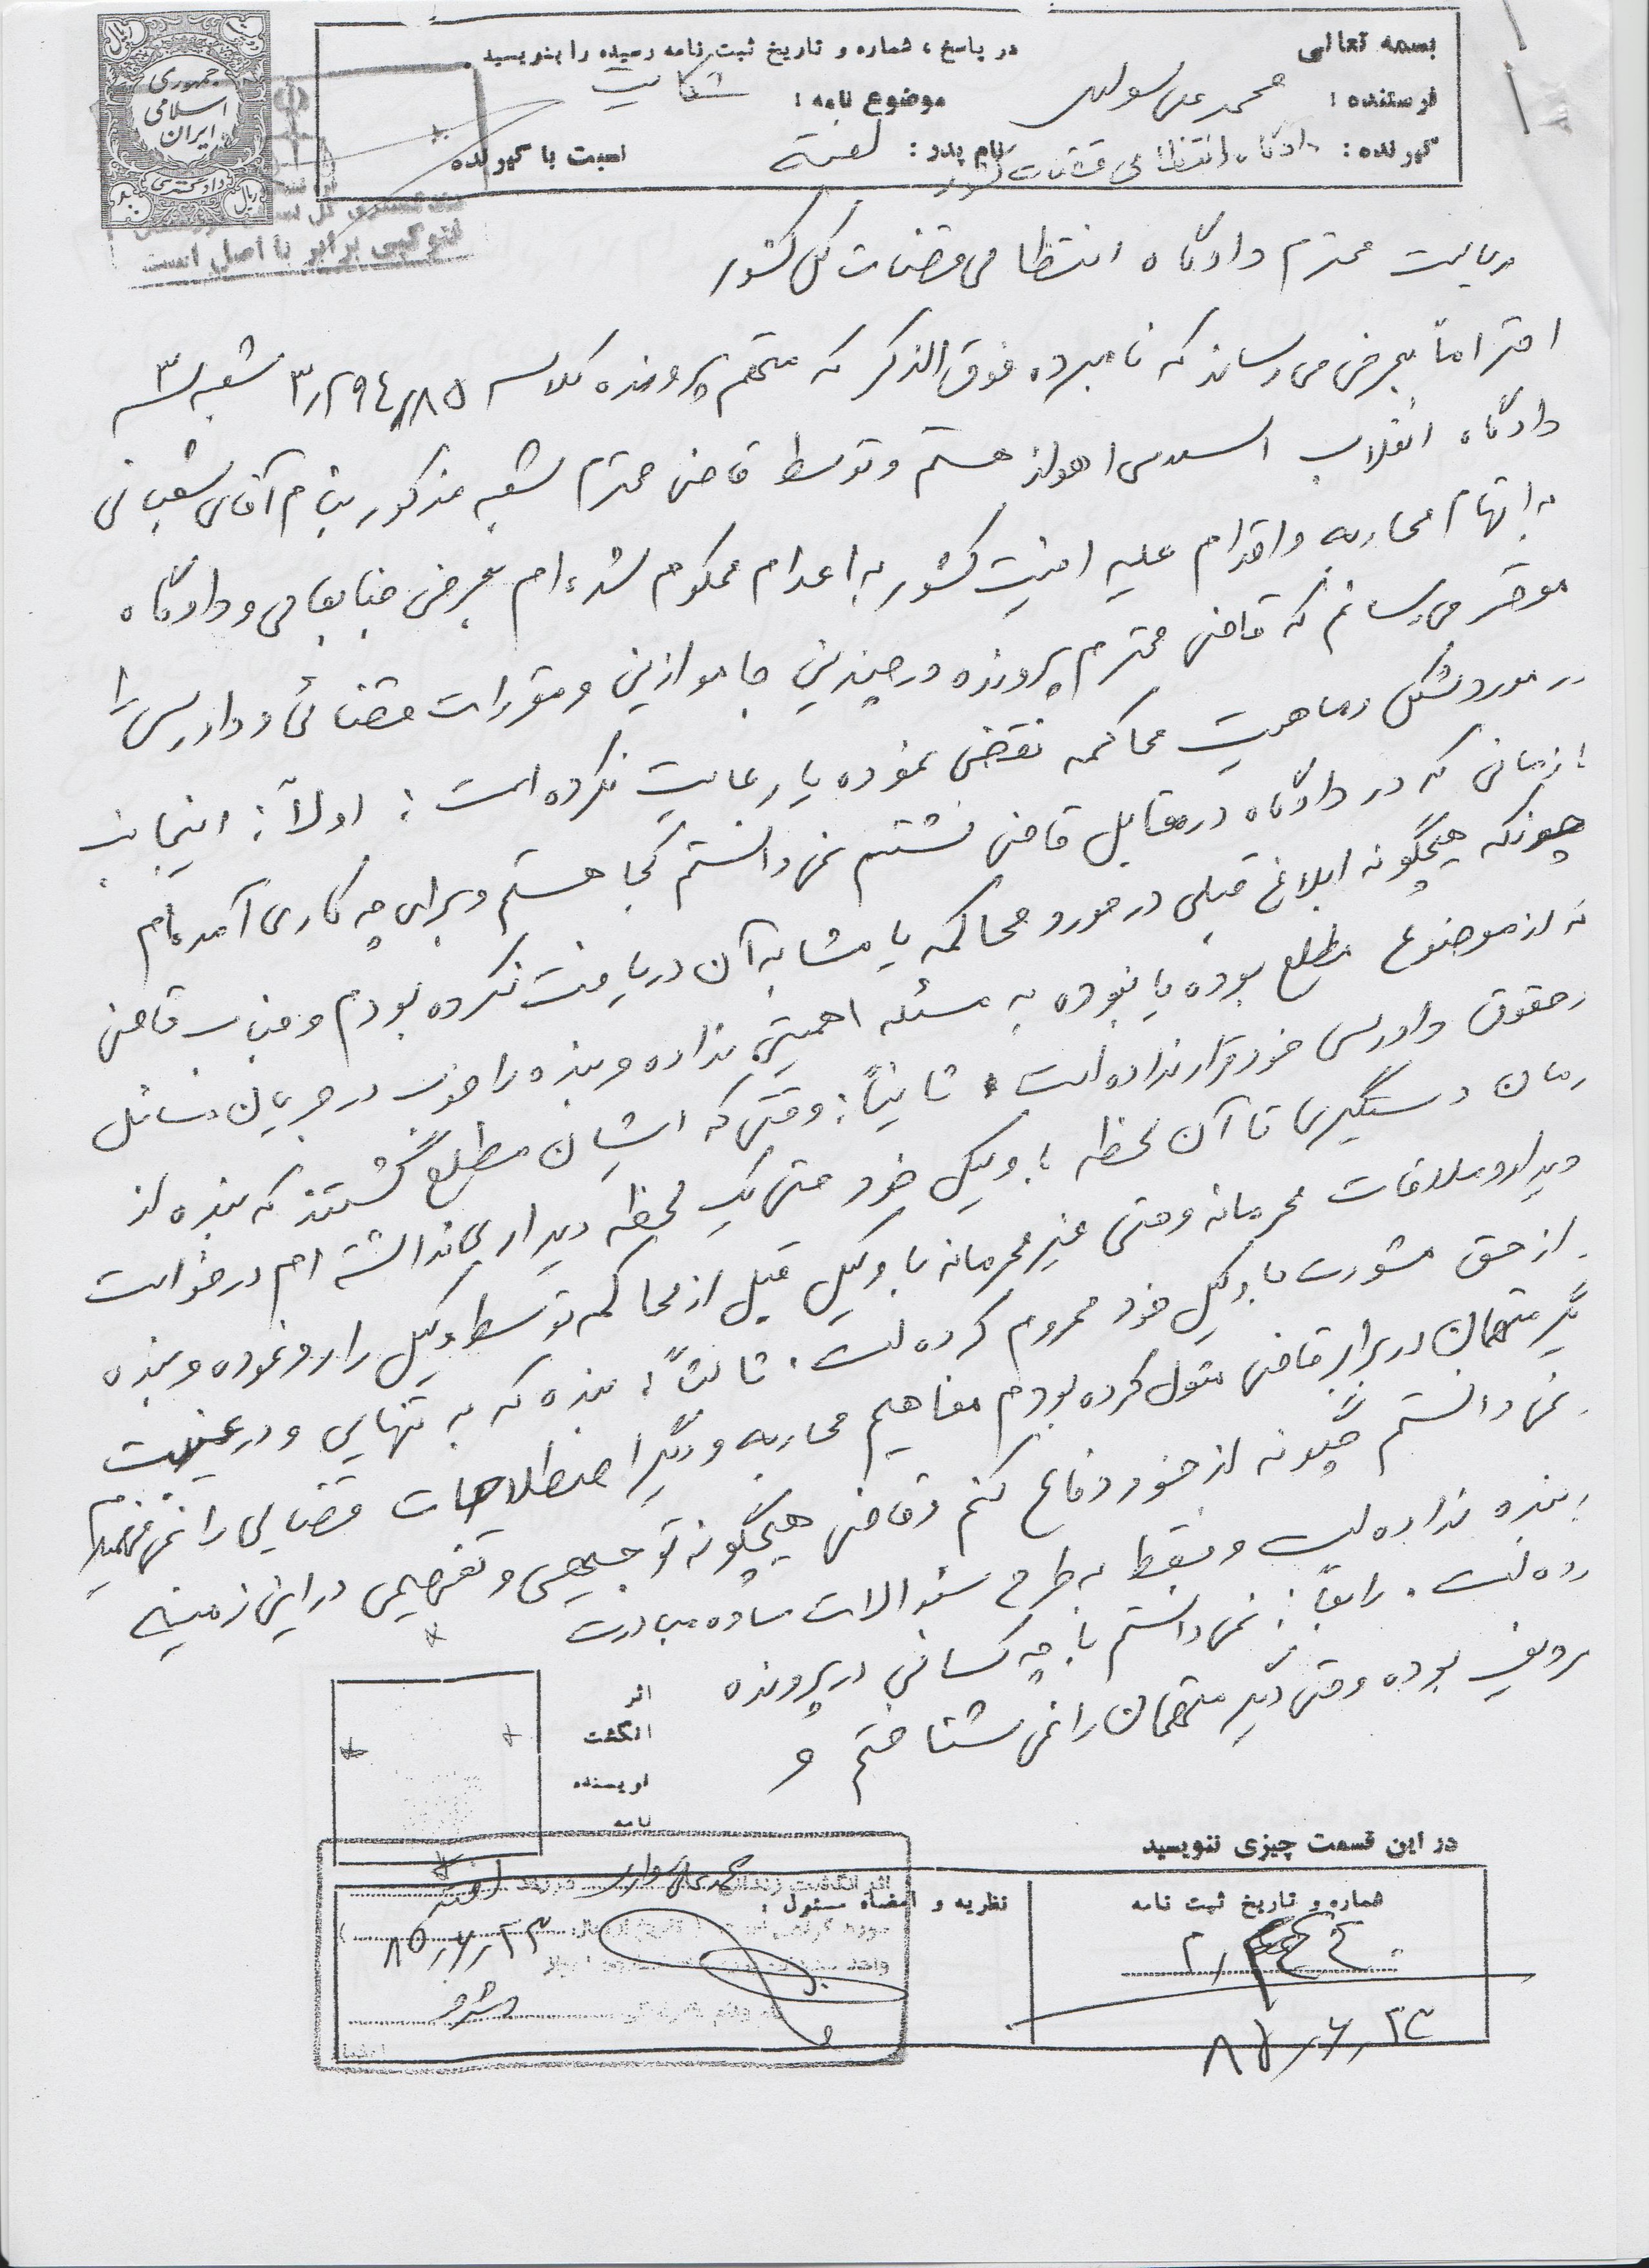 بسمه تعالی
در پاسخ ، شماره و تاریخ ثبت نامه رسیده را بنویسید .
فرستنده : محمد علی سواری
موضوع نامه : شکایت
گیرنده : دادگاه انتظامی قضات کشور
نام پدر : لفته
نسبت با گیرنده
جمهوری
اسلامی
ایران
دادگستری
ریال
فتوکپی برابر با اصل است
ریاست محترم دادگاه انتظامی قضات کل کشور
احتراماً بعرض می رساند که نامبرده فوق الذکر که متهم پرونده کلاسه ۳٫۲۹٤٫۸۵ شعبه ۳
دادگاه انقلاب اسلامی اهواز هستم و توسط قاضی محترم شعبه مذکور بنام آقای شعبانی
به اتهام محاربه و اقدام علیه امنیت کشور به اعدام محکوم شده ام بعرض جنابعالی و دادگاه
موقر می رسانم که قاضی محترم پرونده در چندین جا موازین و مقررات قضائی و دادرسی را
در مورد شکل و ماهیت محاکمه نقض نموده یا رعایت نکرده است : اولاً : اینجانب
از زمانی که در دادگاه در مقابل قاضی نشستم نمی دانستم کجا هستم و برای چه کاری آمده ام
چونکه هیچگونه ابلاغ قبلی در مورد محاکمه یا مشابه آن دریافت نکرده بودم و جناب قاضی
که از موضوع مطلع بوده یا نبوده به مسئله اهمیتی نداده و بنده را خوب در جریان مسائل
و حقوق دادرسی خود قرار نداده است . ثانیاً : وقتی که ایشان مطلع گشتند که بنده از
زمان دستگیری تا آن لحظه با وکیل خود حتی یک لحظه دیداری نداشته ام درخواست
دیدار و ملاقات محرمانه و حتی غیر محرمانه با وکیل قبل از محاکمه توسط وکیل را رد نموده و بنده
را از حق مشورت با وکیل خود محروم کرده است . ثالثاً : بنده که به تنهایی و در غیبت
دیگر متهمان در برابر قاضی مثول کرده بودم مفاهیم محاربه و دیگر اصطلاحات قضایی را نمی فهمیدم
و نمی دانستم چگونه از خود دفاع کنم و قاضی هیچگونه توجیهی و تفهیمی در این زمینه
به بنده نداده است و فقط به طرح سئوالات ساده مبادرت
کرده است . رابعاً : نمی دانستم با چه کسانی در پرونده
ردیف بوده و حتی دیگر متهمان را نمی شناختم و
اثر
انگشت
نویسنده
نامه
در این قسمت چیزی ننویسید
شماره و تاریخ ثبت نامه
نظریه و امضاء مسئول :
اثر انگشت زندانی محمد علی سواری فرزند لفته
۸۵٫۶٫۲۳
۸۵٫۶٫۲۳